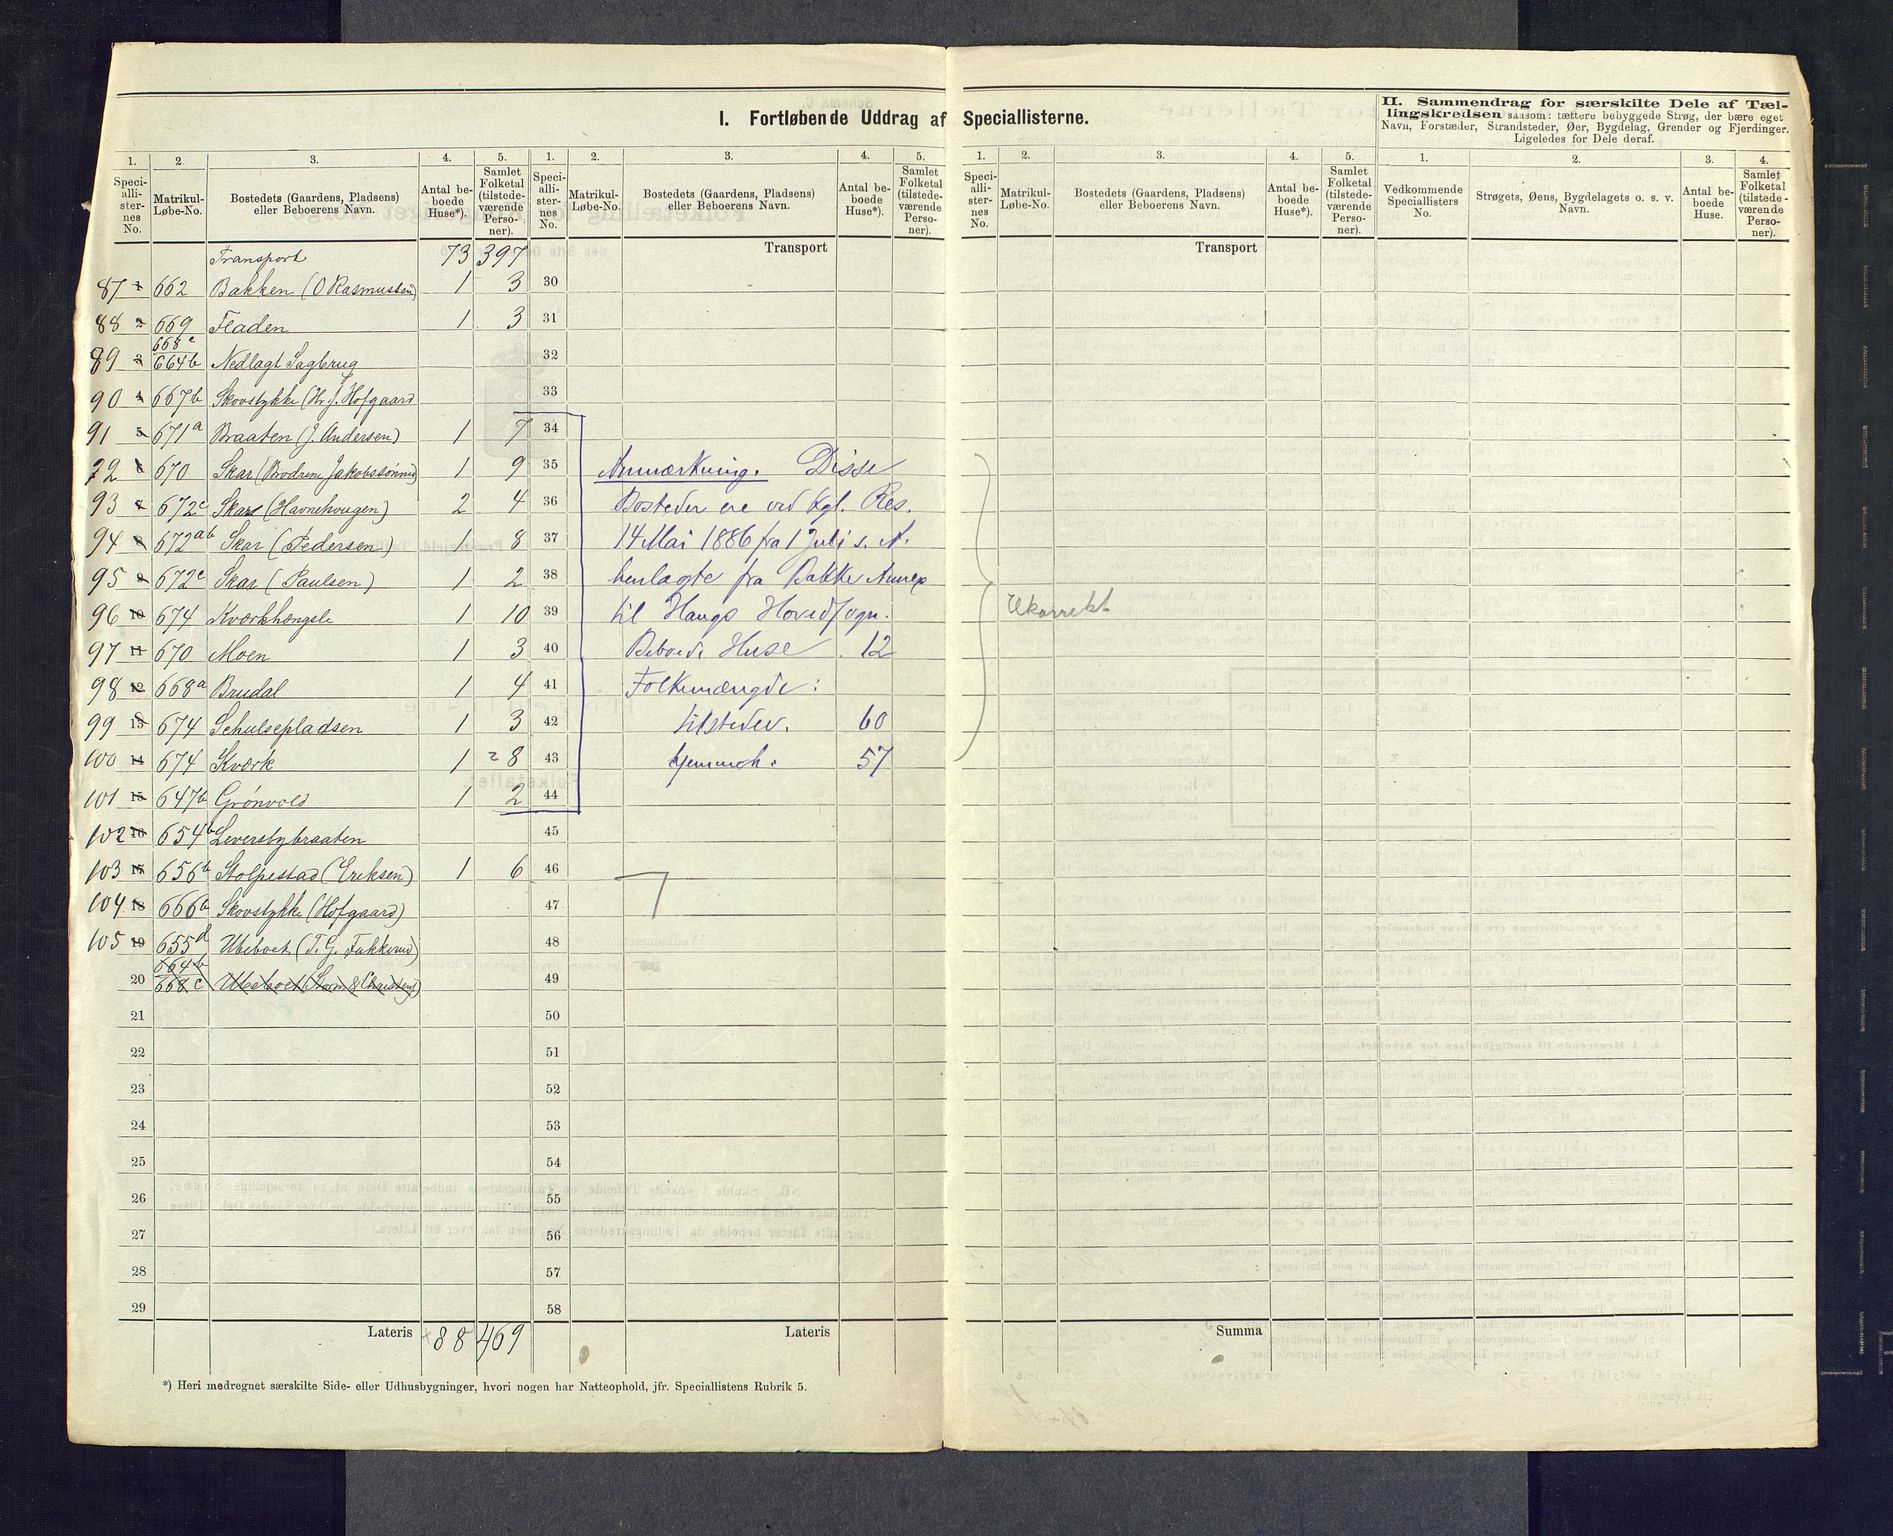 I. Fortløbende Uddrag af Speciallisterne.
II. Sammendrag for særskilte Dele af Tæl-
lingskredsen saasom: tættere bebyggede Strøg, der bære eget
Navn, Forstæder, Strandsteder, Øer, Bygdelag, Grender og Fjerdinger.
Ligeledes for Dele deraf.
1. 2. 3. 4. 5. 1. 2. 3. 4. 5. 1. 2. 3. 4. 5. 1. 2. 3. 4.
Speci-alli-ster-nes No. Matrikul-Løbe-No. Bostedets (Gaardens, Pladsens) eller Beboerens Navn. Antal be-boede Huse*). Samlet Folketal (tilstede-værende Perso-ner).
Speci-alli-ster-nes No. Matrikul-Løbe-No. Bostedets (Gaardens, Pladsens) eller Beboerens Navn. Antal be-boede Huse*). Samlet Folketal (tilstede-værende Perso-ner).
Speci-alli-ster-nes No. Matrikul-Løbe-No. Bostedets (Gaardens, Pladsens) eller Beboerens Navn. Antal be-boede Huse*). Samlet Folketal (tilstede-værende Perso-ner).
Vedkommende Speciallisters No. Strøgets, Øens, Bygdelagets o. s. v. Navn. Antal be-boede Huse. Samlet Folketal (tilstede-værende Perso-ner).
Transport 73 397 Transport Transport
87 1 662 Bakken (O Rasmussen) 1 3 30
88 2 669 Fladen 1 3 31
668c
89 3 664b Nedlagt Sagbrug 32
90 4 667b Skovstykke (Hr. J. Hofgaard 33
91 5 671a Braaten (J. Andersen) 1 7 34
92 6 670 Skar (Brødrene Jakobssønner) 1 9 35 Anmærkning. Disse
93 7 672c Skar (Havnehougen) 2 4 36 Bosteder ere ved kgl. Res.
94 8 672ab Skar (Pedersen) 1 8 37 14 Mai 1886 fra 1 Juli s. A.
95 9 672c Skar (Paulsen) 1 2 38 henlagte fra Bakke Annex
96 10 674 Kværkhængsle 1 10 39 til Haugs Hovedsogn. Ukorrekt
97 11 670 Moen 1 3 40 Beboede Huse 12
98 12 668a Brudal 1 4 41 Folkemængde:
99 13 674 Schulsepladsen 1 3 42 tilstedev. 60
100 14 674 Kværk 1 8 43 hjemmeh. 57
101 15 647b Grønvold 1 2 44
102 16 654b Leversbybraaten 45
103 17 656b Stolpestad (Eriksen) 1 6 46
104 18 666b Skovstykke (Hofgaard) 47
105 19 655d Ubeboet (T. G. Fukkerud) 48
664b
20 668c Ubeboet (Storm & Christens) 49
21 50
22 51
23 52
24 53
25 54
26 55
27 56
28 57
29 58
Lateris 88 469 Lateris Summa
*) Heri medregnet særskilte Side- eller Udhusbygninger, hvori nogen har Natteophold, jfr. Speciallistens Rubrik 5.